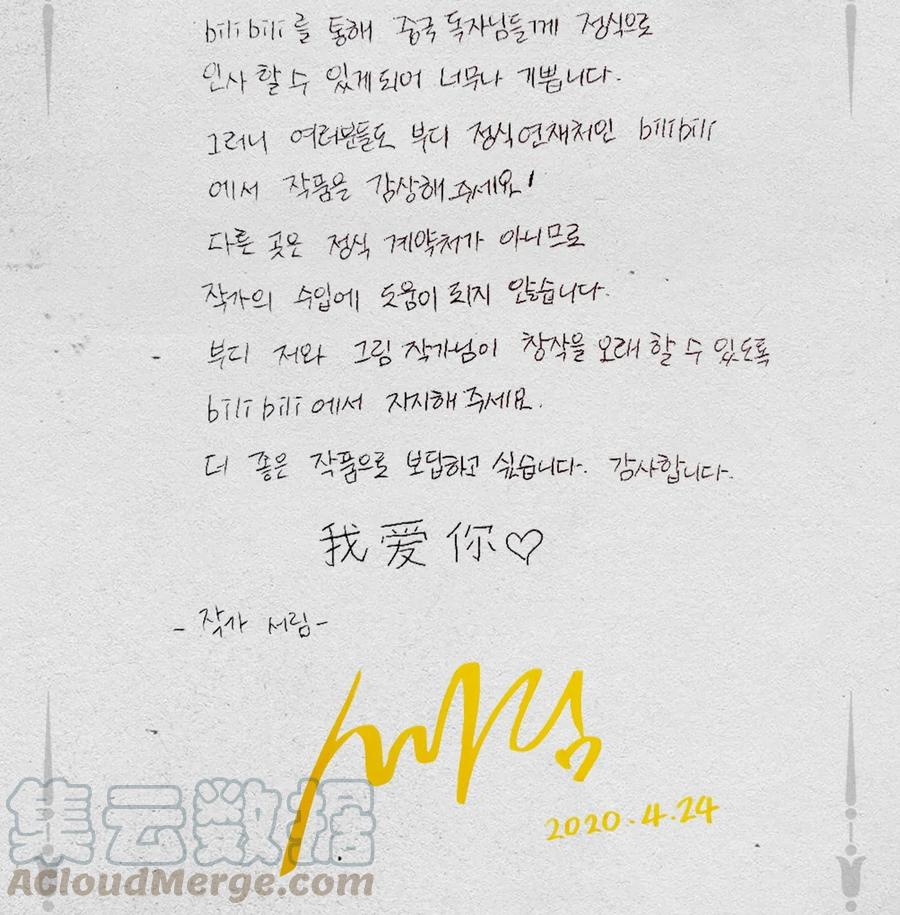 bilibili를 통해 중국 독자님들께 정식으로
인사 할 수 있게되어 너무나 기쁩니다.
그러니 여러분들도 부디 정식연재처인 bilibili
에서 작품을 감상해 주세요!
다른 곳은 정식 계약처가 아니므로
작가의 수입에 도움이 되지 않습니다.
부디 저와 그림 작가님이 창작을 오래 할 수 있도록
bilibili에서 지지해 주세요.
더 좋은 작품으로 보답하고 싶습니다. 감사합니다.
我爱你♡
- 작가 서림 -
서림
2020.4.24
集云数据
ACloudMerge.com